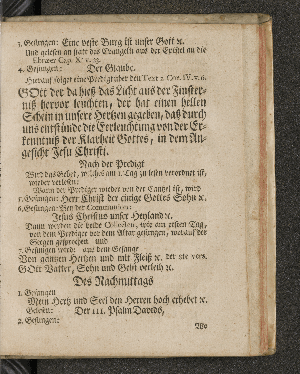 3. Gesungen: Eine veste Burg ist unser Gott ꝛc.
Und gelesen an statt des Evangelii aus der Epistel an die
Ebræer Cap. X. v. 23.
4. Gesungen: Der Glaube.
Hierauf folget eine Predigt über den Text 2. Cor. IV. v. 6.
GOtt der da hieß das Licht aus der Finster-
niß hervor leuchten, der hat einen hellen
Schein in unsere Hertzen gegeben, daß durch
uns entstünde die Erleuchtung von der Er-
kenntniß der Klarheit Gottes, in dem An-
gesicht Jesu Christi.
Nach der Predigt
Wird das Gebet, welches am 1. Tag zu lesen verordnet ist,
wieder verlesen:
Wann der Prediger wieder von der Cantzel ist, wird
5. Gesungen: Herr Christ der einige Gottes Sohn ꝛc.
6. Gesungen: Bey der Communion:
Jesus Christus unser Heyland ꝛc.
Dann werden die beide Collecten, wie am ersten Tag,
von dem Prediger vor dem Altar gesungen, worauf der
Seegen gesprochen und
7. Gesungen wird: aus dem Gesange
Von gantzen Hertzen und mit Fleiß ꝛc. der 4te vers.
GOtt Vatter, Sohn und Geist verleih ꝛc.
Des Nachmittags
1. Gesungen
Mein Hertz und Seel den Herren hoch erhebet ꝛc.
Gelesen: Der III. Psalm Davids,
2. Gesungen:
Wo